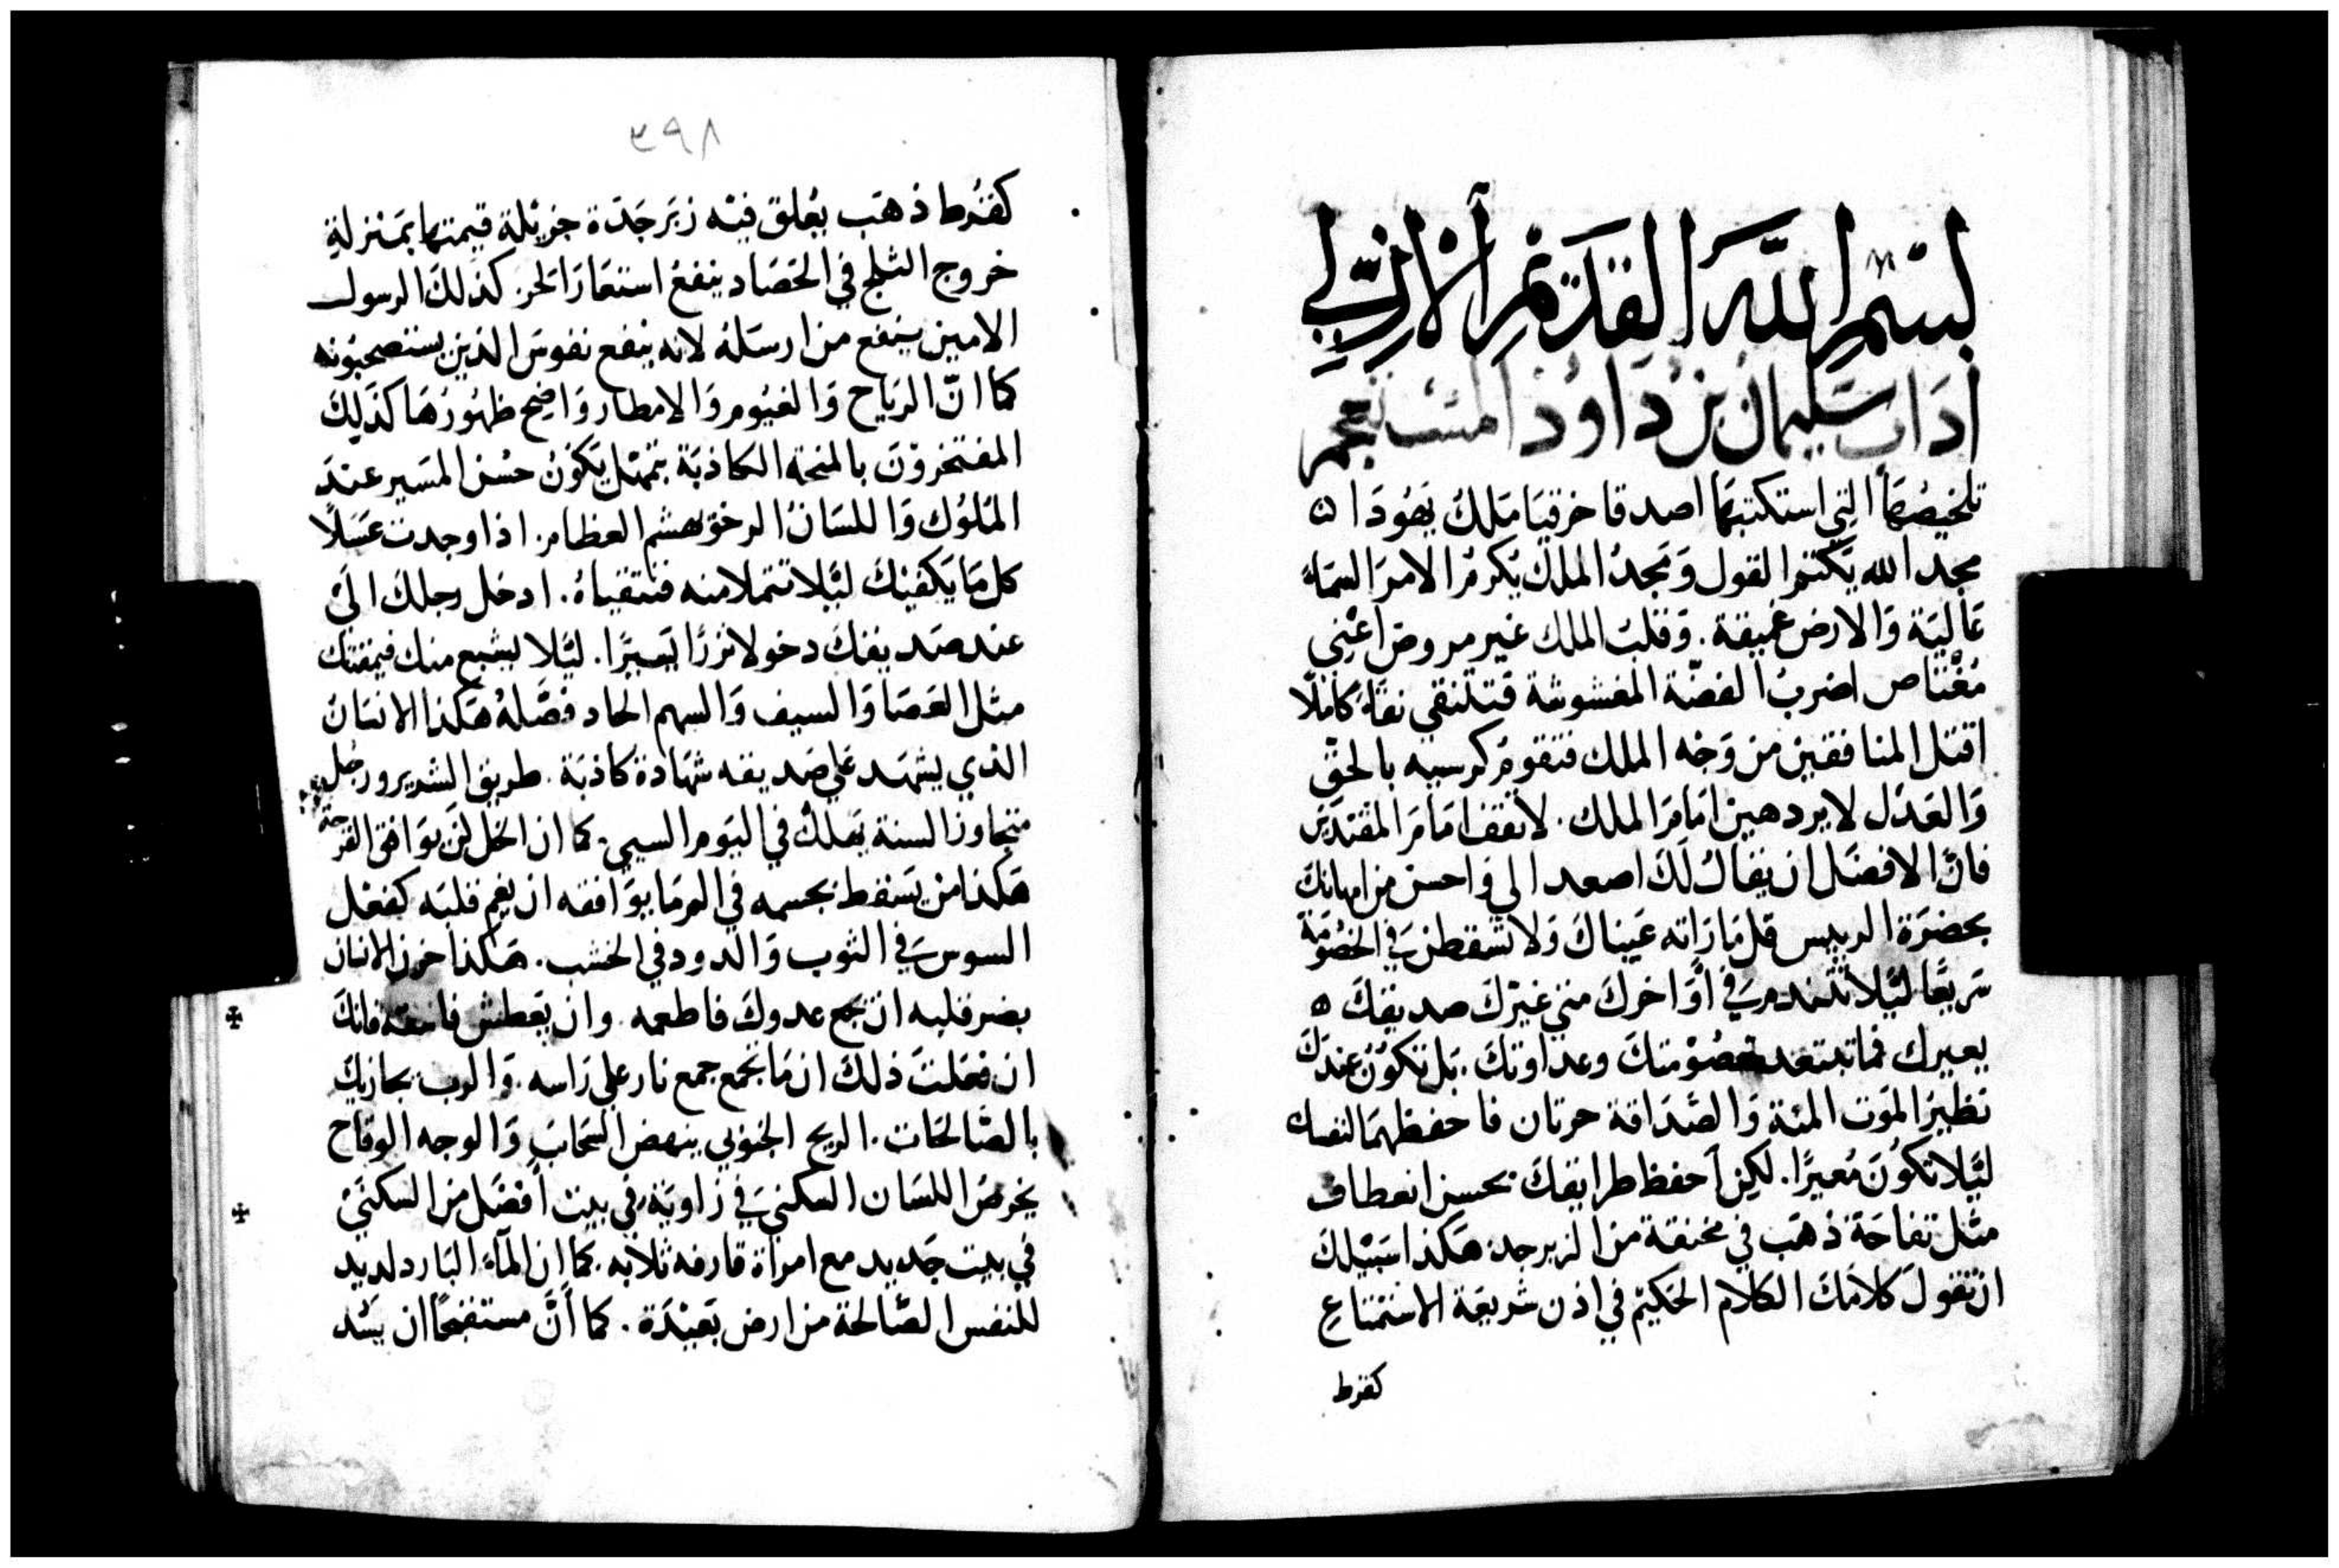 بسم الله القديم الازلي
اداب سليمان بن داود المستعجم
تلخيصها التي استكتبها اصدقا حزقيا ملك يهودا
مجد الله يكتم القول ومجد الملك يكرم الامر السماء
عالية والارض عميقة. وقلب الملك غير مروض اعني
مغتاص اضرب الفضة المغشوشة فتتنقي نقاء كاملا
اقتل المنافقين من وجه الملك فتقوم كرسيه بالحق
والعدل لا يردهين امام الملك. لا تقف امام المقتدين
فان الافضل ان يقال لك اصعد الي واحسن من امهانك
بحضرة الرييس قل ما راته عيناك ولا تسقطن في الخصومة
سريعا ليلا تتندم في أواخرك متي غيرك صديقك
يعيرك فما تبتعد خصومتك وعداوتك. بل تكون عندك
نظير الموت المنة والصداقة حرتان فاحفظهما لنفسك
ليلا تكون معيرا. لكن أحفظ طرايقك بحسن انعطاف
مثل تفاحة ذهب في مخنقة من الزبرجد هكذا سبيلك
ان تقول كلامك الكلام الحكيم في اذن شريعة الاستمتاع
كقرط
٣٩٨
كقرط ذهب يعلق فيه زبرجدة جزيلة قيمتها بمنزلة
خروج الثلج في الحصاد ينفع استعار الحر كذلك الرسول
الامين ينفع من ارسله لانه ينفع نفوس الذين يستصحبونه
كما انّ الرياح والغيوم والامطار واضح ظهورها كذلك
المفتخرون بالمنحة الكاذبة بتمهل يكون حسن المسير عند
الملوك واللسان الرخو يهشم العظام. اذا وجدت عسلا
كل ما يكفيك ليلا تتملا منه فتتقياه. ادخل رجلك الي
عند صديقك دخولا نزرا يسيرا. ليلا يشبع منك فيمقتك
مثل العصا والسيف والسهم الحاد فصله هكذا الانسان
الذي يشهد علي صديقه شهادة كاذبة. طريق الشرير ورجل
متجاوز السنة يهلك في اليوم السيي. كما ان الخل لن يوافق القرحة
هكذا من يسقط بجسمه في الم ما يوافقه ان يغم قلبه كفعل
السوس في الثوب والدود في الخشب. هكذا حزن الانسان
يضر قلبه ان يجع عدوك فاطعمه. وان يعطش فاسقه فانك
ان فعلت ذلك انما تجمع جمع نار علي راسه. والرب يجازيك
بالصالحات. الريح الجنوبي ينهض السحاب والوجه الوقاح
يخرص اللسان السكني في زاوية في بيت أفضل من السكني
في بيت جديد مع امراة قارفه ثلابه. كما ان المآء البارد لديد
للنفس الصالحة من ارض بعيدة. كما أنّ مستقبحا ان يسد